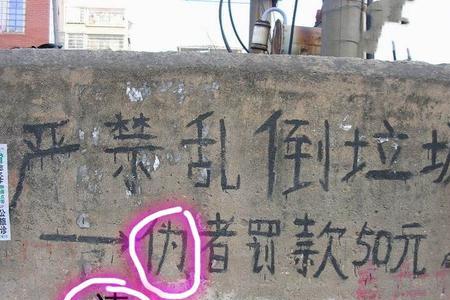 严禁乱倒垃圾
伪者罚款50元